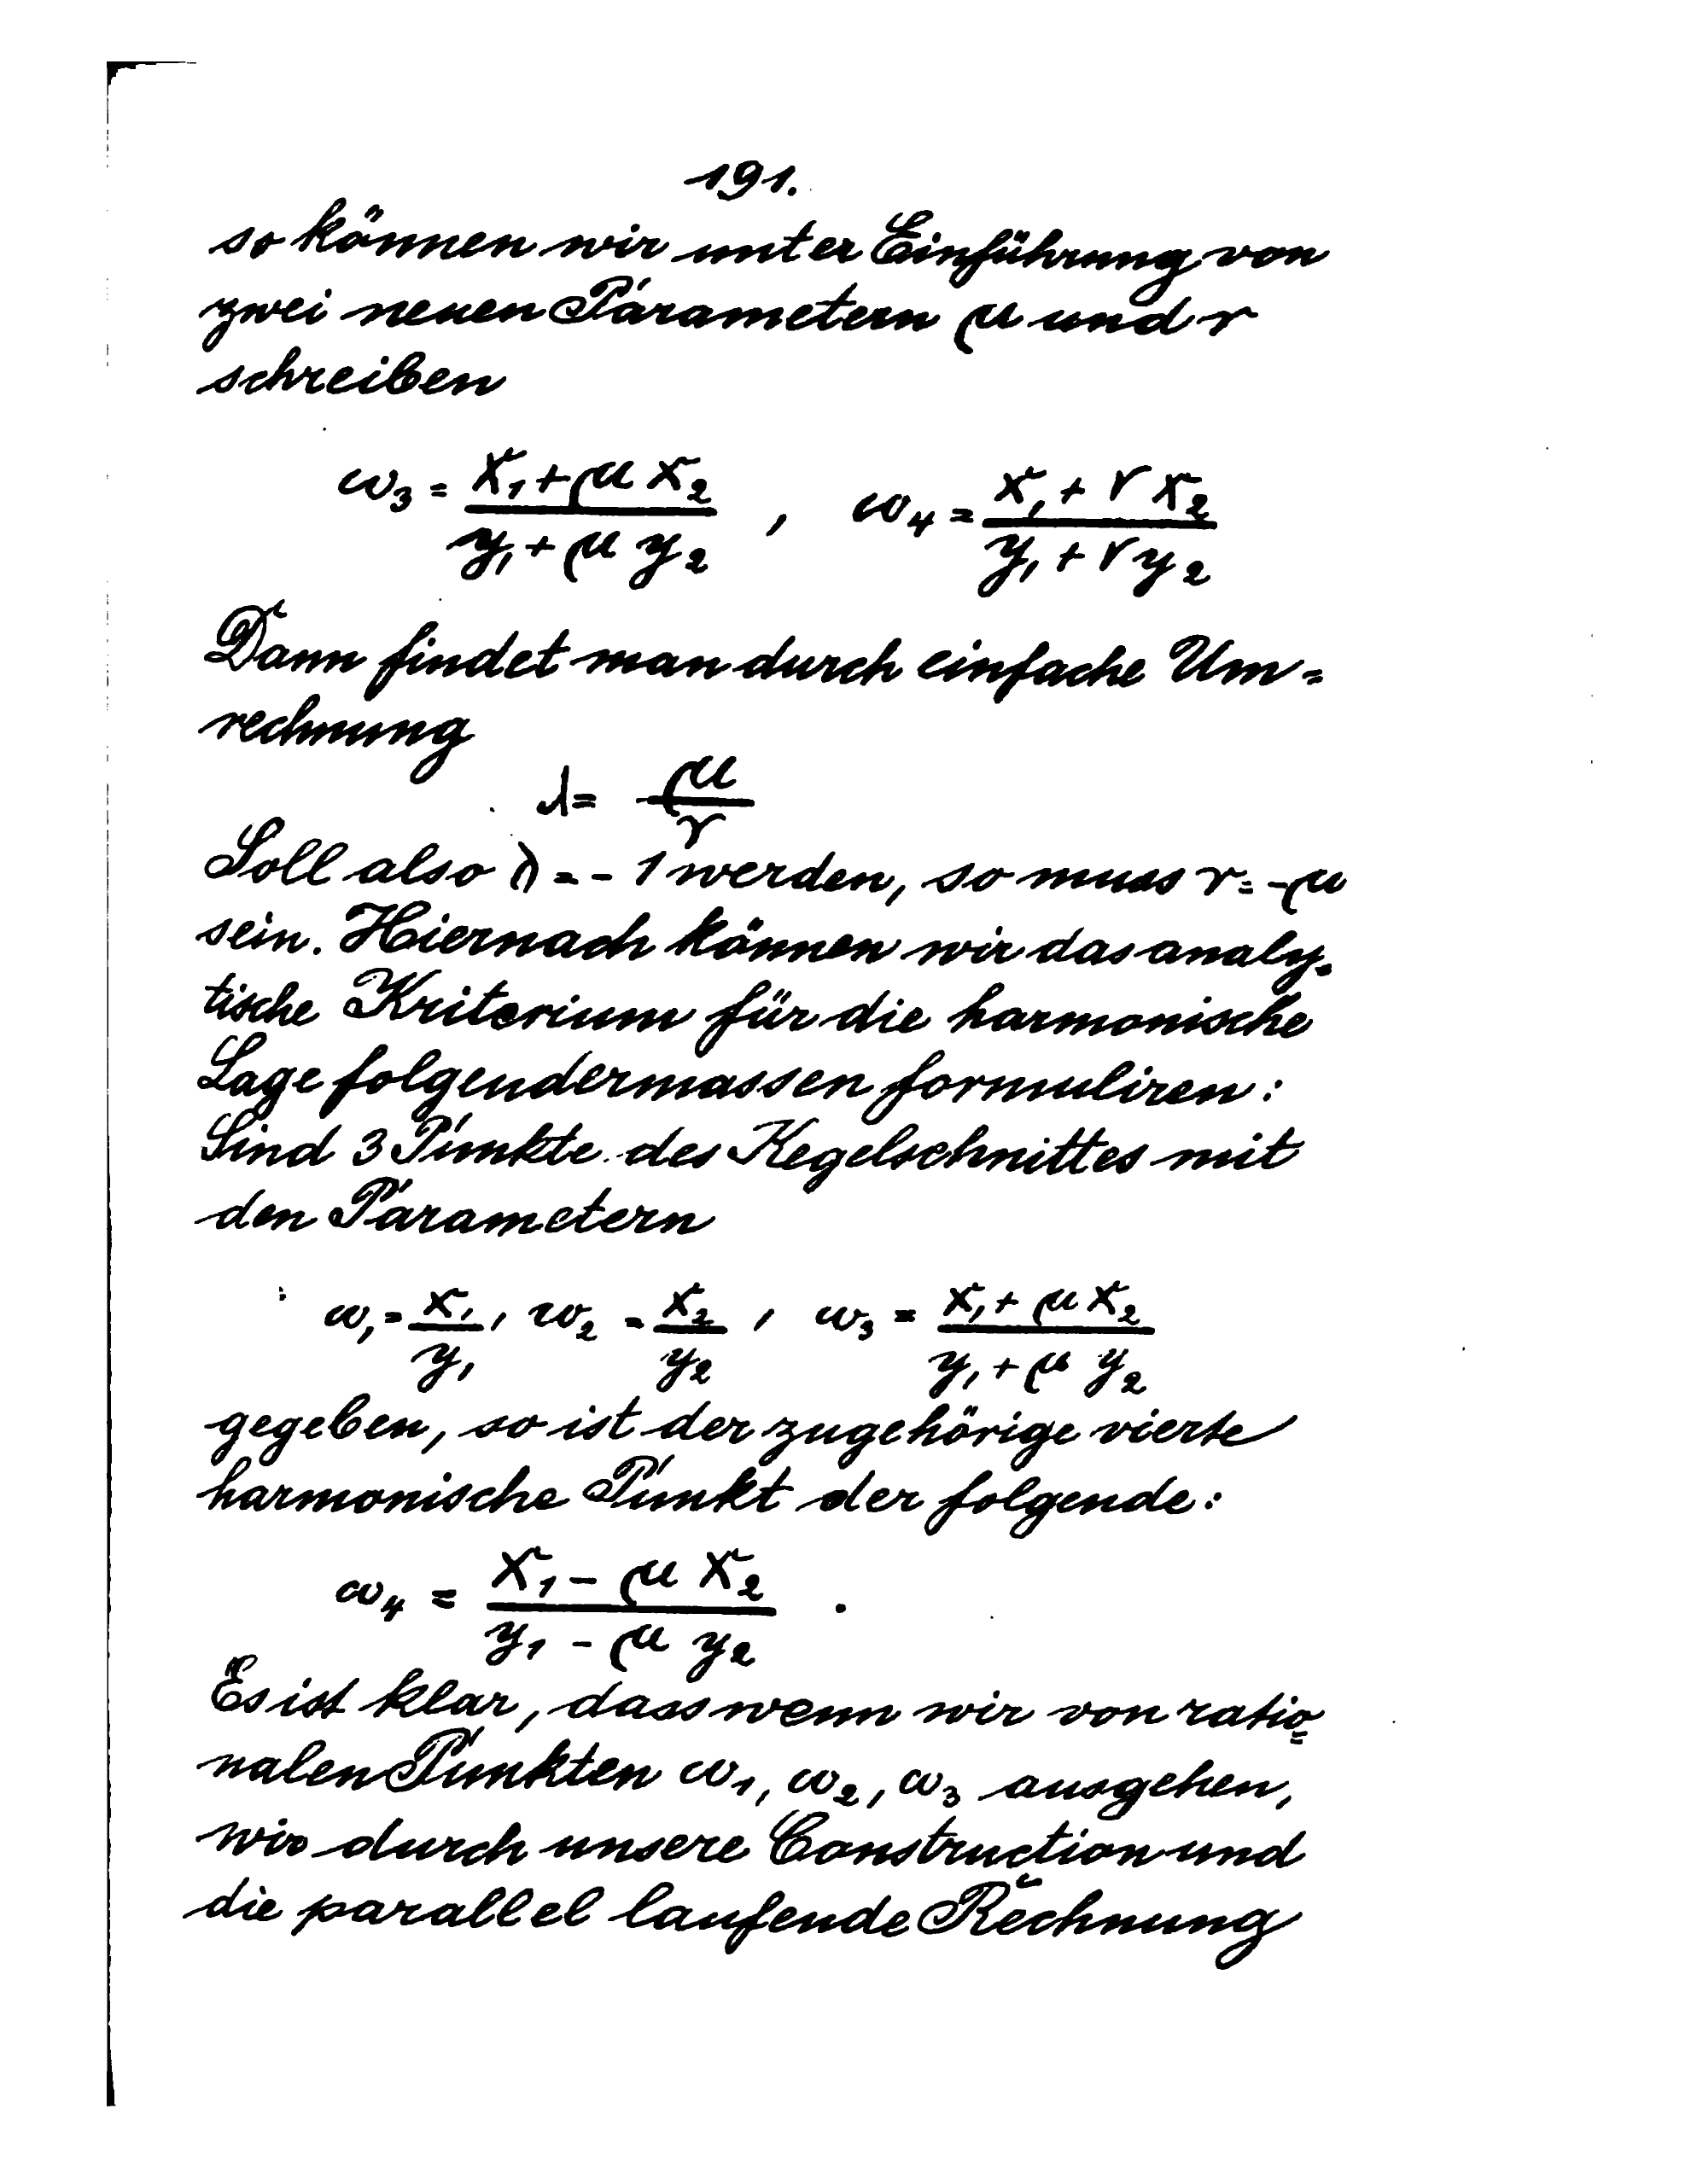 191.
so können wir unter Einführung von
zwei neuen Parametern μ und ν
schreiben
ω₃ = (x₁ + μ x₂)/(y₁ + μ y₂) , ω₄ = (x₁ + ν x₂)/(y₁ + ν y₂)
Dann findet man durch einfache Um=
rechnung
λ = μ/ν
Soll also λ = - 1 werden, so muss ν = -μ
sein. Hiernach können wir das analy-
tische Kriterium für die harmonische
Lage folgendermassen formuliren:
Sind 3 Punkte des Kegelschnittes mit
den Parametern
ω₁ = x₁/y₁ , ω₂ = x₂/y₂ , ω₃ = (x₁ + μ x₂)/(y₁ + μ y₂)
gegeben, so ist der zugehörige vierte
harmonische Punkt der folgende:
ω₄ = (x₁ - μ x₂)/(y₁ - μ y₂) .
Es ist klar, dass wenn wir von ratio=
nalen Punkten ω₁, ω₂, ω₃ ausgehen,
wir durch unsere Construction und
die parallel laufende Rechnung